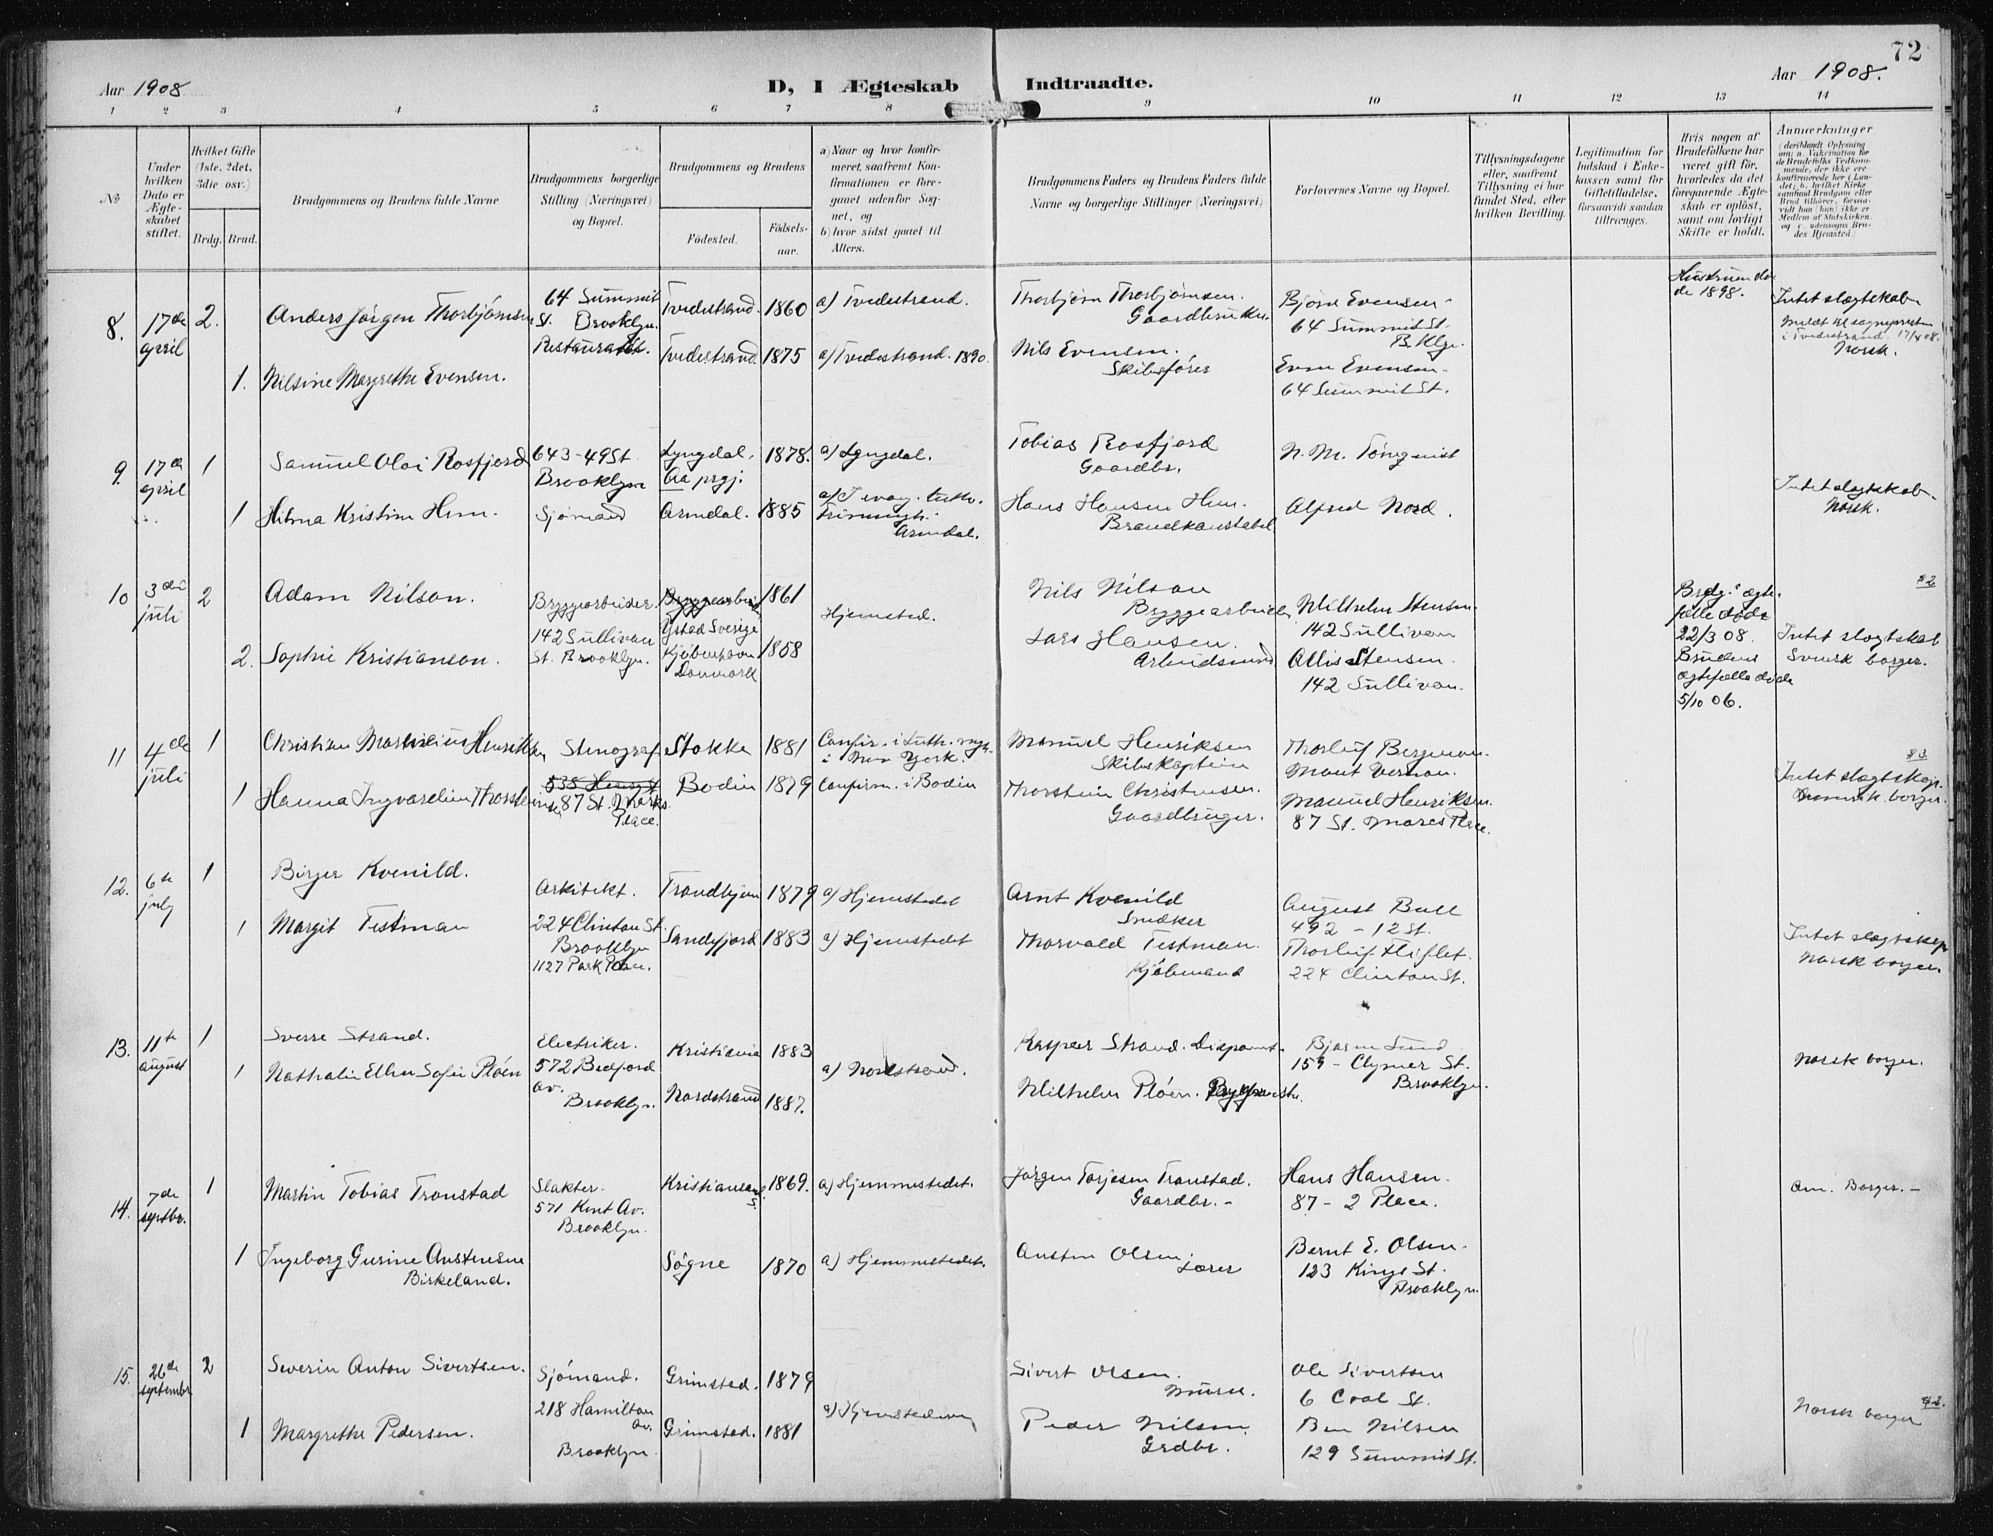 72
Aar 1908
D, I Ægteskab Indtraadte.
Aar 1908.
1 2 3 4 5 6 7 8 9 10 11 12 13 14
No
Under hvilken Dato er Ægteskabet stiftet.
Hvilket Gifte (1ste, 2det, 3die osv.)
Brdg. Brud.
Brudgommens og Brudens fulde Navne
Brudgommens borgerlige Stilling (Næringsvei) og Bopæl.
Brudgommens og Brudens
Fødested.
Fødselsaar.
a) Naar og hvor konfirmeret, saafremt Konfirmationen er foregaaet udenfor Sognet, og
b) hvor sidst gaaet til Alters.
Brudgommens Faders og Brudens Faders fulde Navne og borgerlige Stillinger (Næringsvei)
Forlovernes Navne og Bopæl.
Tillysningsdagene eller, saafremt Tillysning ei har fundet Sted, efter hvilken Bevilling.
Legitimation for Indskud i Enkekassen samt for Giftetilladelse, forsaavidt saadan tiltrænges.
Hvis nogen af Brudefolkene har været gift før, hvorledes da det foregaaende Ægteskab er opløst, samt om lovligt Skifte er holdt.
Anmærkninger
8. 17de april 2.
Anders Jørgen Thorbjørnsen
64 Summit
St. Brooklyn.
Restaurat.
Tvedestrand. 1860 a) Tvedestrand.
Thorbjørn Thorbjørnsen.
Gaardbruker
Bjørn Evensen
64 Summit St.
B.klyn.
Hustruen døde 1898.
Intet slegtskab
Norsk.
1. Nilsine Margrethe Evensen.
Tvedestrand 1875 a) Tvedestrand. 1890.
Nils Evensen.
Skibsfører
Even Evensen
64 Summit St.
9. 17de april 1
Samuel Olai Rosfjord
643 - 49 St
Brooklyn
Sjømand
Lyngdal. 1878. a) Lyngdal.
Tobias Rosfjord
Gaardbr.
N. M. Törnqvist
1 Hilma Kristine Hem.
Arendal. 1885
Arendal.
Hans Hansen Hem.
Brandkonstabel
Alfred Nord.
Intet slegtskab.
Norsk.
10 3die juli 2
Adam Nilson.
Bryggearbeider.
142 Sullivan
St. Brooklyn.
Ystad Sverige 1861
Hjemsted.
Nils Nilson
Bryggearbeider
Wilhelm Stensen
142 Sullivan
Brdg.s ægtefælle døde
22/3 08.
Brudens
ægtefælle døde
5/10 06.
Intet slegtskab
Svensk borger.
2. Sophie Kristianson.
Kjøbenhavn
Danmark 1858
Lars Hansen.
Arbeidsmand
Allis Stensen.
142 Sullivan.
11 4de juli 1
Christian Martinius Henriksen
Stenograf
87 St. Marks
Place.
Stokke 1881
Confir. i Luth. mgh.
i New York.
Manuel Henriksen
Skibskaptein
Thorleif Bergman
Mount Vernon.
1 Hanna Ingvardine Thorsteinsen
Bodin 1879 Confirm. i Bodin
Thorstein Christensen.
Gaardbruger.
Manuel Henriksen.
87 St. Marcs Place.
Intet slegtskap.
Amerik. borger.
12. 6te july 1
Birger Kvenild.
Arkitekt.
224 Clinton St.
Brooklyn
1127 Park Place.
Trondhjem 1879 a) Hjemstedet
Arnt Kvenild
Snedker
August Bull
492 - 12 St.
1 Margit Testman
Sandefjord 1883 a) Hjemstedet
Thorvald Testman.
Kjøbmand
Thorleif Fliflet.
224 Clinton St.
Intet slegtskap
Norsk borger
13. 11te august 1
Sverre Strand.
Electriker.
572 Bedford
Av.
Brooklyn.
Kristiania 1883
Kaspar Strand. Disponent.
Bjarne Lund
159 - Clymer St.
Brooklyn.
Norsk borger.
1 Nathalie Ellen Sofie Pløen
Nordstrand 1887. a) Nordstrand.
Wilhelm Pløen. Byggmester.
14. 7de septbr. 1
Martin Tobias Tronstad
Slakter.
571 Kent Av.
Brooklyn.
Kristiansand S. 1869. a) Hjemmestedet.
Jørgen Torjesen Tronstad.
Gaardbr. -
Hans Hansen.
87 - 2 Place.
Am. Borger. -
1 Ingeborg Gurine Austensen
Birkeland.
Søgne 1870 a) Hjemmestedet.
Austen Olsen.
Lærer
Bernt E. Olsen.
123 King St.
Brooklyn.
15. 26de septembr 2
Severin Anton Sivertsen.
Sjømand.
218 Hamilton
Av.
Brooklyn.
Grimstad. 1879
Sivert Olsen.
Murer.
Ole Sivertsen
6 Coal St.
1 Margrethe Pedersen.
Grimstad. 1881
Peder Nilsen
Grdbr.
Ben Nilsen
129 Summit St.
Norsk borger